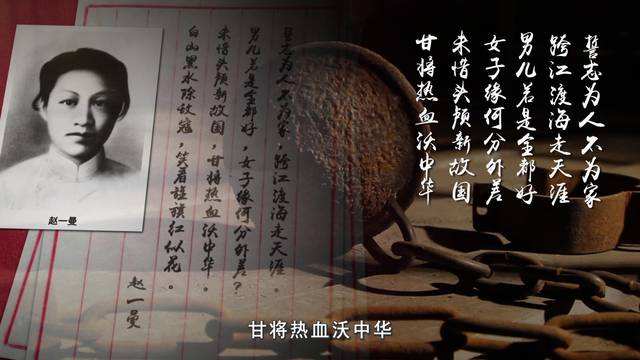 赵一曼
誓志为人不为家，跨江渡海走天涯。
男儿若是全都好，女子缘何分外差？
未惜头颅新故国，甘将热血沃中华。
白山黑水除敌寇，笑看旌旗红似花。
赵一曼
誓志为人不为家
跨江渡海走天涯
男儿若是全都好
女子缘何分外差
未惜头颅新故国
甘将热血沃中华
甘将热血沃中华